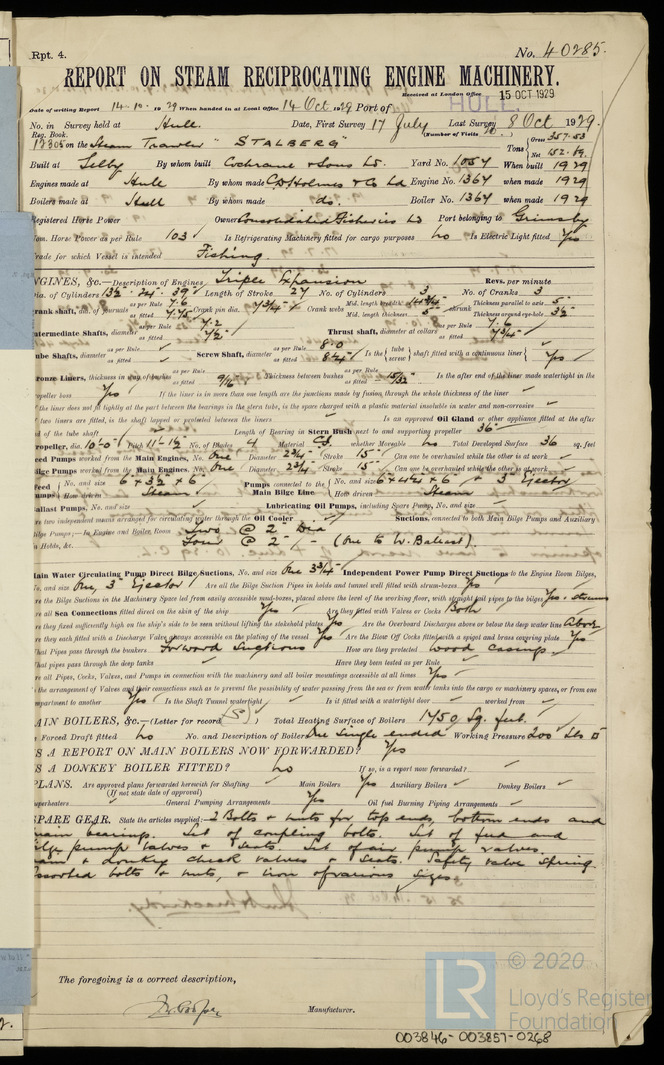 Rpt. 4.
No. 40285.
REPORT ON STEAM RECIPROCATING ENGINE MACHINERY.
Received at London Office 15 OCT 1929
Date of writing Report 14-10-1929 When handed in at Local Office 14 Oct 1929 Port of HULL.
No. in Survey held at Hull. Date, First Survey 17 July Last Survey 8 Oct 1929.
Reg. Book. (Number of Visits
12305 on the Steam Trawler "STALBERG" Tons Gross 357.53 Net 152.89
Built at Selby By whom built Cochrane & Sons Ld. Yard No. 1054 When built 1929
Engines made at Hull By whom made C.D. Holmes & Co Ld Engine No. 1364 when made 1929
Boilers made at Hull By whom made do. Boiler No. 1364 when made 1929
Registered Horse Power Owners Consolidated Fisheries Ld Port belonging to Grimsby
Nom. Horse Power as per Rule 103 Is Refrigerating Machinery fitted for cargo purposes No Is Electric Light fitted Yes
Trade for which Vessel is intended Fishing.
ENGINES, &c.—Description of Engines Triple Expansion Revs. per minute
Dia. of Cylinders 13½ - 24 - 39 Length of Stroke 27 No. of Cylinders 3 No. of Cranks 3
Crank shaft, dia. of journals as per Rule 7.6 as fitted 7.75 Crank pin dia. 7¾ Crank webs Mid. length breadth Mid. length thickness 5 shrunk Thickness parallel to axis 5 Thickness around eye-hole 3½
Intermediate Shafts, diameter as per Rule 7.2 as fitted 7½ Thrust shaft, diameter at collars as per Rule 7.6 as fitted 7¾
Tube Shafts, diameter as per Rule as fitted Screw Shaft, diameter as per Rule 8.0 as fitted 8¼ Is the tube screw shaft fitted with a continuous liner Yes
Bronze Liners, thickness in way of bushes as per Rule as fitted 9/16 Thickness between bushes as per Rule as fitted 15/32 Is the after end of the liner made watertight in the
propeller boss Yes If the liner is in more than one length are the junctions made by fusion through the whole thickness of the liner
If the liner does not fit tightly at the part between the bearings in the stern tube, is the space charged with a plastic material insoluble in water and non-corrosive
If two liners are fitted, is the shaft lapped or protected between the liners Is an approved Oil Gland or other appliance fitted at the after
end of the tube shaft Length of Bearing in Stern Bush next to and supporting propeller 36"
Propeller, dia. 10-0 Pitch 11-1½ No. of Blades 4 Material C.I. whether Moveable No Total Developed Surface 36 sq. feet
Feed Pumps worked from the Main Engines, No. One Diameter 2¾ Stroke 15" Can one be overhauled while the other is at work
Bilge Pumps worked from the Main Engines, No. One Diameter 2¾ Stroke 15" Can one be overhauled while the other is at work
Feed Pumps No. and size 6 x 3½ x 6 How driven Steam Pumps connected to the Main Bilge Line No. and size 6 x 4¼ x 6 & 3" Ejector How driven Steam
Ballast Pumps, No. and size Lubricating Oil Pumps, including Spare Pump, No. and size
Are two independent means arranged for circulating water through the Oil Cooler Suctions, connected to both Main Bilge Pumps and Auxiliary
Bilge Pumps;—In Engine and Boiler Room Two @ 2" Dia
In Holds, &c. Four @ 2" - (One to W. Ballast).
Main Water Circulating Pump Direct Bilge Suctions, No. and size One 3¾ Independent Power Pump Direct Suctions to the Engine Room Bilges,
No. and size One, 3" Ejector Are all the Bilge Suction Pipes in holds and tunnel well fitted with strum-boxes Yes
Are the Bilge Suctions in the Machinery Space led from easily accessible mud-boxes, placed above the level of the working floor, with straight tail pipes to the bilges Yes - strums
Are all Sea Connections fitted direct on the skin of the ship Yes Are they fitted with Valves or Cocks Both
Are they fixed sufficiently high on the ship's side to be seen without lifting the stokehold plates Yes Are the Overboard Discharges above or below the deep water line Above
Are they each fitted with a Discharge Valve always accessible on the plating of the vessel Yes Are the Blow Off Cocks fitted with a spigot and brass covering plate Yes
What Pipes pass through the bunkers Forward Suctions How are they protected Wood casings.
What pipes pass through the deep tanks Have they been tested as per Rule
Are all Pipes, Cocks, Valves, and Pumps in connection with the machinery and all boiler mountings accessible at all times Yes
Is the arrangement of Valves and their connections such as to prevent the possibility of water passing from the sea or from water tanks into the cargo or machinery spaces, or from one
compartment to another Yes Is the Shaft Tunnel watertight Is it fitted with a watertight door worked from
MAIN BOILERS, &c.—(Letter for record (S)) Total Heating Surface of Boilers 1750 Sq. feet.
Is Forced Draft fitted No No. and Description of Boilers One Single ended Working Pressure 200 Lbs □"
IS A REPORT ON MAIN BOILERS NOW FORWARDED? Yes
IS A DONKEY BOILER FITTED? No If so, is a report now forwarded?
PLANS. Are approved plans forwarded herewith for Shafting Main Boilers Yes Auxiliary Boilers Donkey Boilers
(If not state date of approval)
Superheaters General Pumping Arrangements Yes Oil fuel Burning Piping Arrangements
SPARE GEAR. State the articles supplied:— 2 Bolts & nuts for top ends, bottom ends and
main bearings. Set of coupling bolts. Set of feed and
bilge pump valves & seats. Set of air pump valves.
main & donkey check valves & seats. Safety valve spring
assorted bolts & nuts, & iron of various sizes
The foregoing is a correct description,
Manufacturer.
LR © 2020
Lloyd's Register
Foundation
003846-003857-0268